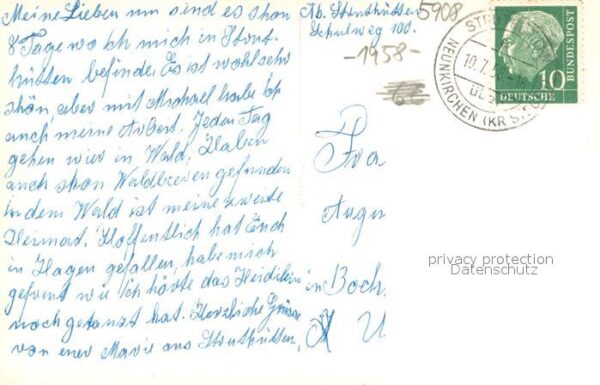 Meine Lieben nun sind es schon
8 Tage wo Ich mich in Stent-
hütten befinde. Es ist wohl sehr
schön, aber mit Michael habe Ich
auch meine Arbeit. Jeden Tag
gehen wier in Wald, Haben
auch shon Waldberen gefunden
in dem Wald ist meine zweite
Heimat. Hoffentlich hat Euch
in Hagen gefallen, habe mich
gefreut wie Ich hörte das Heidilein
noch getanzt hat. Herzliche Grüsse
von euer Marie aus Stenthütten.
Ab. Stenthütten
Schulweg 100.
5908
-1958-
Fra
Augu
in Boch
NEUNKIRCHEN (KR
10.7.
10
DEUTSCHE
BUNDESPOST
privacy protection
Datenschutz